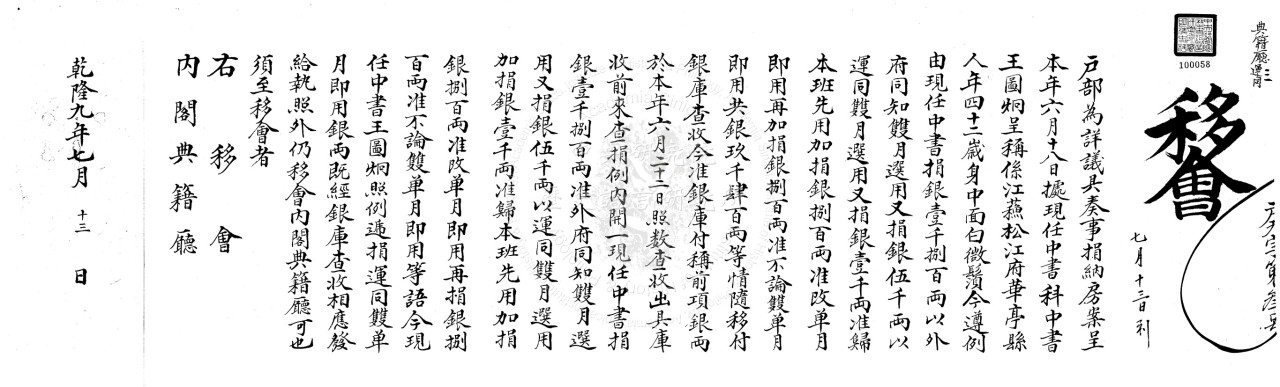 典籍廳
100058
移會
七月十三日到
戶部為詳議具奏事捐納房案呈
本年六月十八日據現任中書科中書
王圖炯呈稱係江蘇松江府華亭縣
人年四十二歲身中面白微鬚今遵例
由現任中書捐銀壹千捌百兩以外
府同知雙月選用又捐銀伍千兩以
運同雙月選用又捐銀壹千兩准歸
本班先用加捐銀捌百兩准改單月
即用再加捐銀捌百兩准不論雙單月
即用共銀玖千肆百兩等情隨移付
銀庫查收今准銀庫付稱前項銀兩
於本年六月二十二日照數查收出具庫
收前來查捐例內開一現任中書捐
銀壹千捌百兩准外府同知雙月選
用又捐銀伍千兩以運同雙月選用
加捐銀壹千兩准歸本班先用加捐
銀捌百兩准改單月即用再捐銀捌
百兩准不論雙單月即用等語今現
任中書王圖炯照例遞捐運同雙單
月即用銀兩既經銀庫查收相應發
給執照外仍移會內閣典籍廳可也
須至移會者
右移會
內閣典籍廳
乾隆九年七月十三日